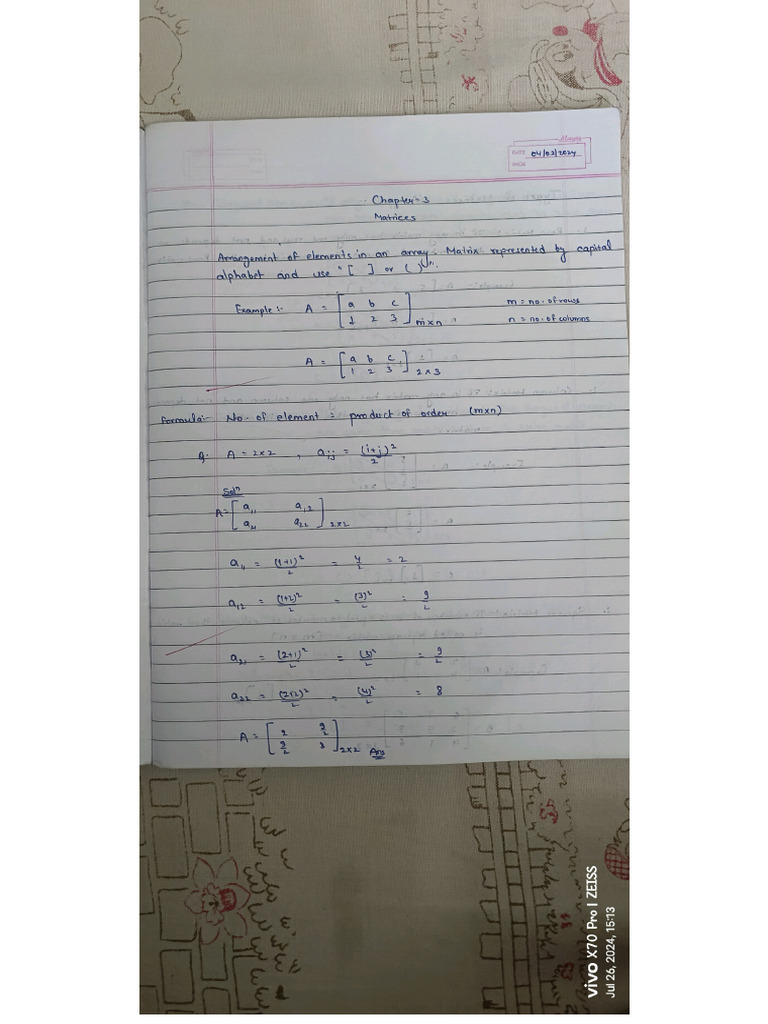 DATE 04/02/2024
PAGE
Chapter-3
Matrices
Arrangement of elements in an array. Matrix represented by capital
alphabet and use "[ ] or ( )".
Example :- A = [ a b c m = no. of rows
1 2 3 ] m×n n = no. of columns
A = [ a b c
1 2 3 ] 2×3
Formula:- No. of element = product of order (m×n)
Q. A = 2×2 , aij = (i+j)²/2
Solⁿ
A = [ a11 a12
a21 a22 ] 2×2
a11 = (1+1)²/2 = 4/2 = 2
a12 = (1+2)²/2 = (3)²/2 = 9/2
a21 = (2+1)²/2 = (3)²/2 = 9/2
a22 = (2+2)²/2 = (4)²/2 = 8
A = [ 2 9/2
9/2 8 ] 2×2 Ans
vivo X70 Pro | ZEISS
Jul 26, 2024, 15:13